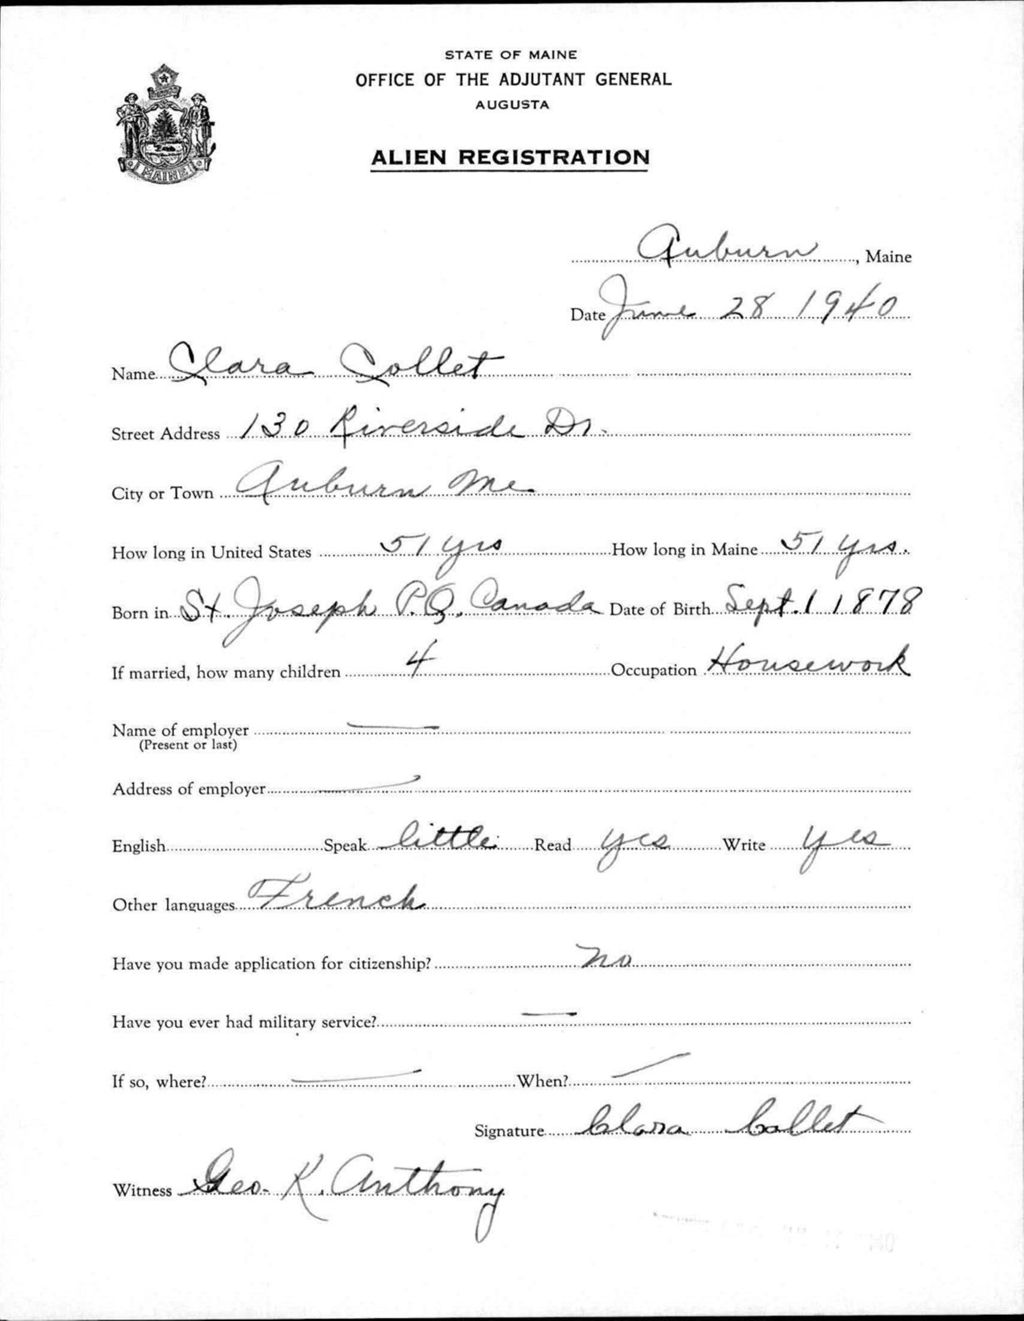 STATE OF MAINE
OFFICE OF THE ADJUTANT GENERAL
AUGUSTA
ALIEN REGISTRATION
MAINE
Auburn, Maine
Date June 28 1940
Name Clara Collet
Street Address 130 Riverside Dr.
City or Town Auburn Me
How long in United States 51 yrs How long in Maine 51 yrs.
Born in St. Joseph P.Q. Canada Date of Birth Sept. 1 1878
If married, how many children 4 Occupation Housework
Name of employer —
(Present or last)
Address of employer —
English Speak little Read yes Write yes
Other languages French
Have you made application for citizenship? No
Have you ever had military service? —
If so, where? — When? —
Signature Clara Collet
Witness Geo. K. Anthony